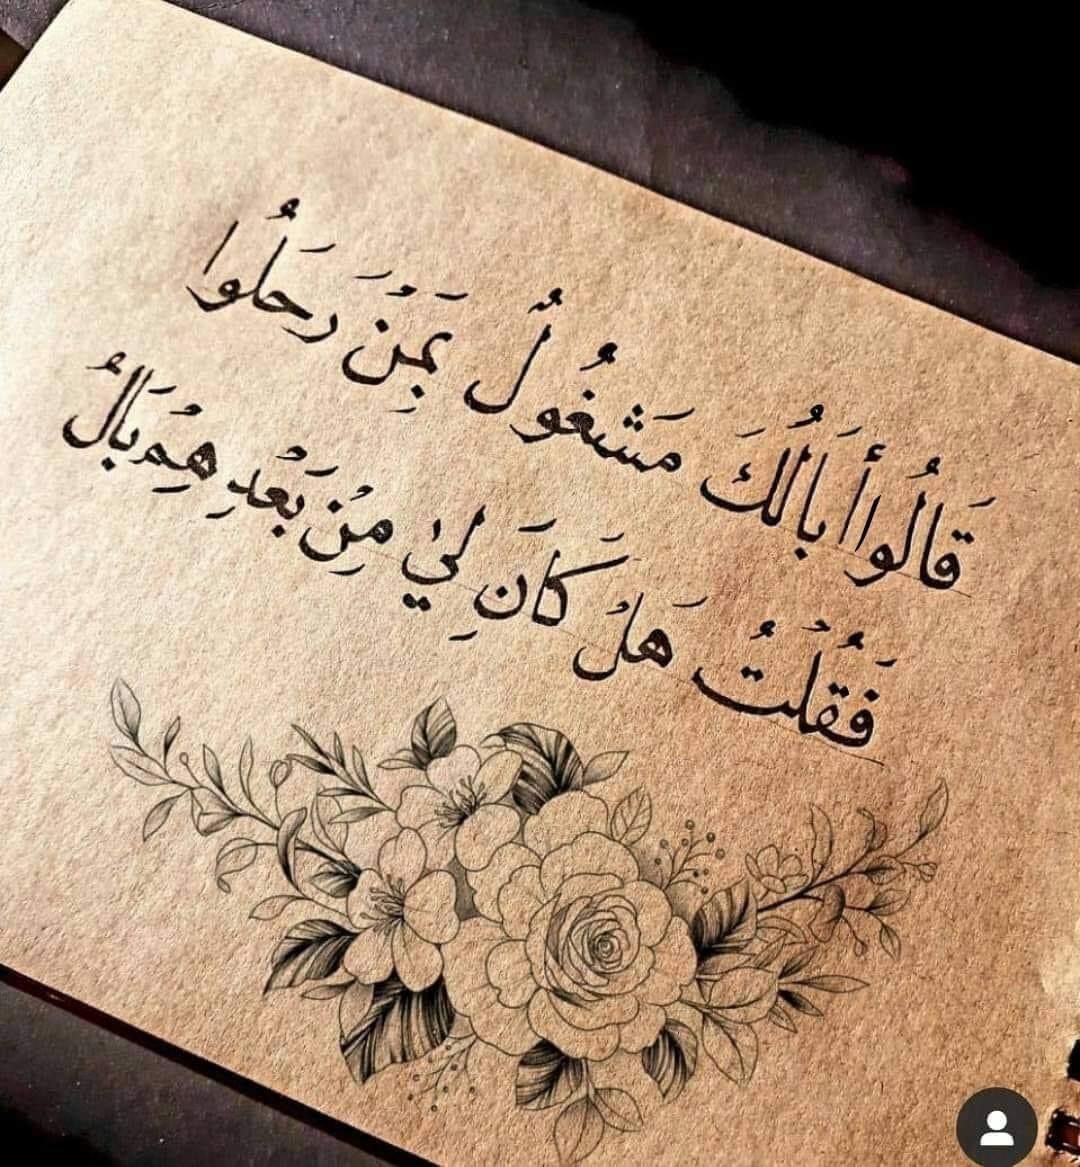 قَالُوا أَبَالُكَ مَشْغُولٌ بِمَنْ رَحَلُوا
فَقُلْتُ هَلْ كَانَ لِيْ مِنْ بَعْدِهِمْ بَالُ